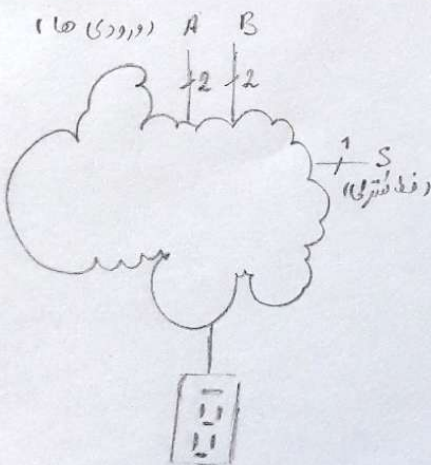 (ورودی ها) A B
2 2
1
S
(خط کنترلی)